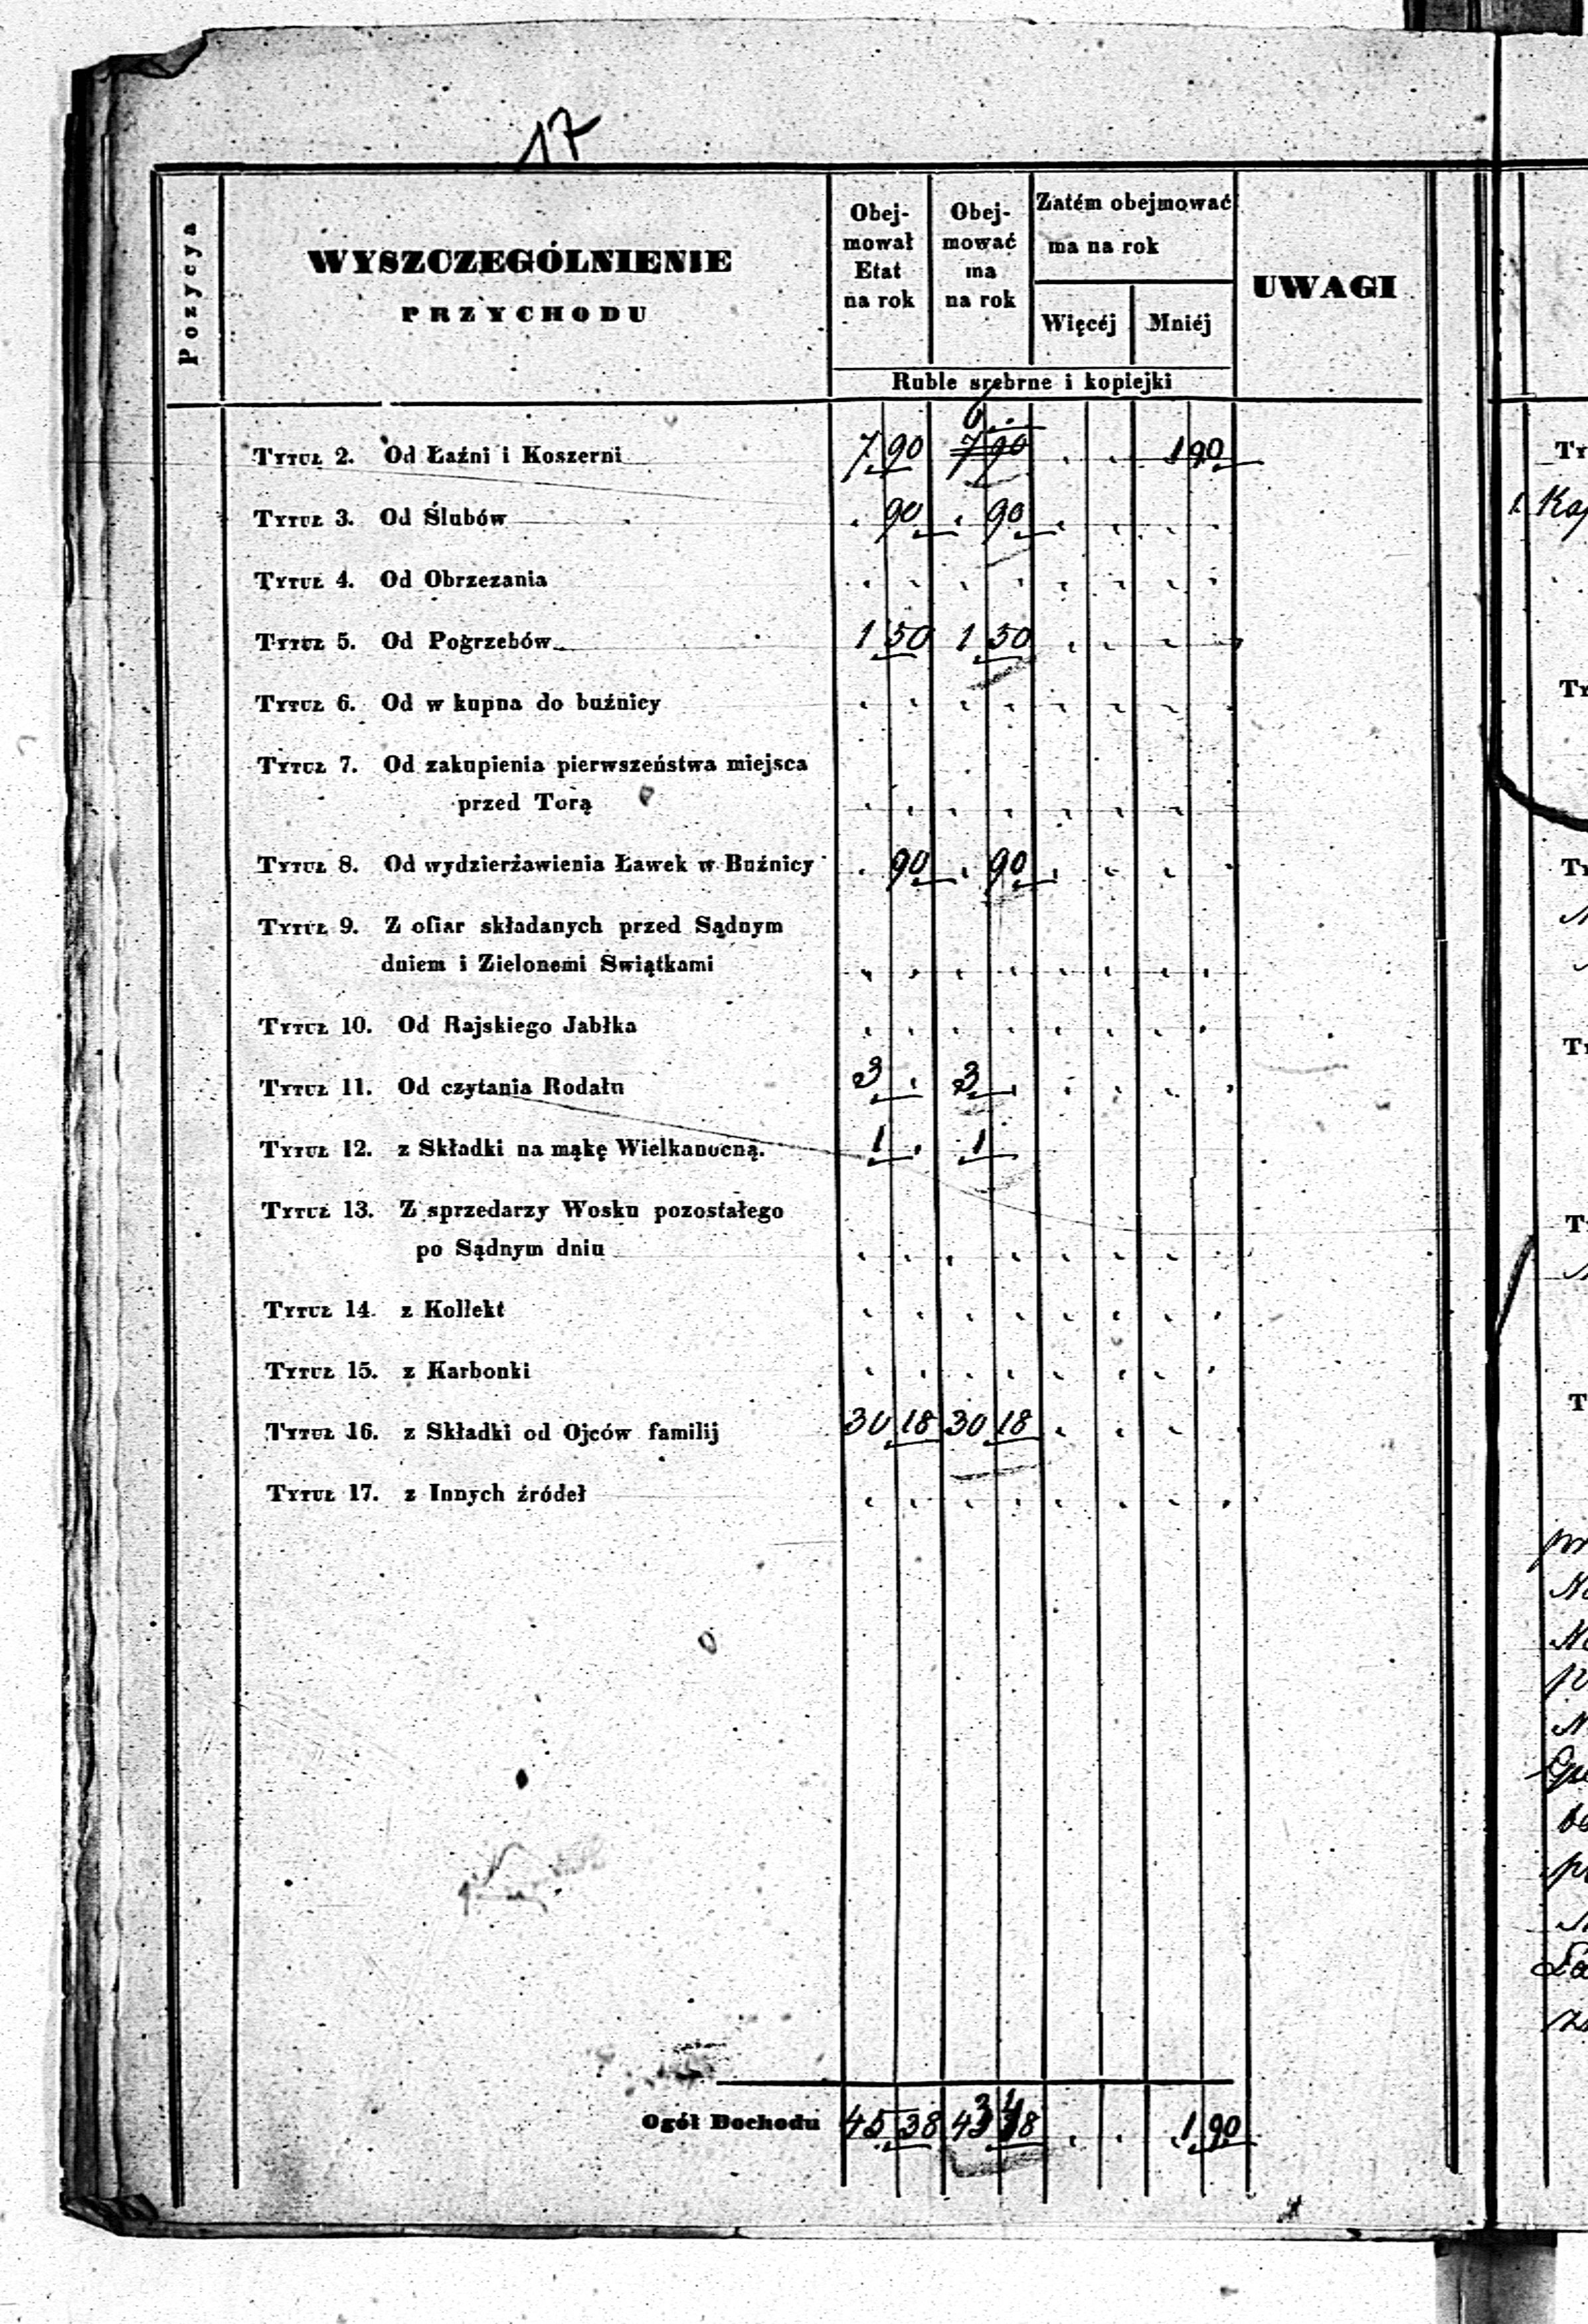 17
Pozycya
WYSZCZEGÓLNIENIE
PRZYCHODU
Obej-
mował
Etat
na rok
Obej-
mować
ma
na rok
Zatém obejmować
ma na rok
Więcéj Mniéj
UWAGI
Ruble srebrne i kopiejki
6 .
Tytuł 2. Od Łaźni i Koszerni 7 90 7 90 . . 1 90
Tytuł 3. Od Ślubów . 90 . 90 . . . .
Tytuł 4. Od Obrzezania . . . . . . . .
Tytuł 5. Od Pogrzebów 1 50 1 50 . . . .
Tytuł 6. Od w kupna do buźnicy . . . . . . . .
Tytuł 7. Od zakupienia pierwszeństwa miejsca
przed Torą . . . . . . . .
Tytuł 8. Od wydzierżawienia Ławek w Buźnicy . 90 . 90 . . . .
Tytuł 9. Z ofiar składanych przed Sądnym
dniem i Zielonemi Swiątkami . . . . . . . .
Tytuł 10. Od Rajskiego Jabłka . . . . . . . .
Tytuł 11. Od czytania Rodału 3 . 3 . . . . .
Tytuł 12. z Składki na mąkę Wielkanocną. 1 . 1
Tytuł 13. Z sprzedarzy Wosku pozostałego
po Sądnym dniu . . . . . . . .
Tytuł 14. z Kollekt . . . . . . . .
Tytuł 15. z Karbonki . . . . . . . .
Tytuł 16. z Składki od Ojców familij 30 18 30 18 . . . .
Tytuł 17. z Innych źródeł . . . . . . . .
Ogół Dochodu 45 38 43 48 . . 1 90